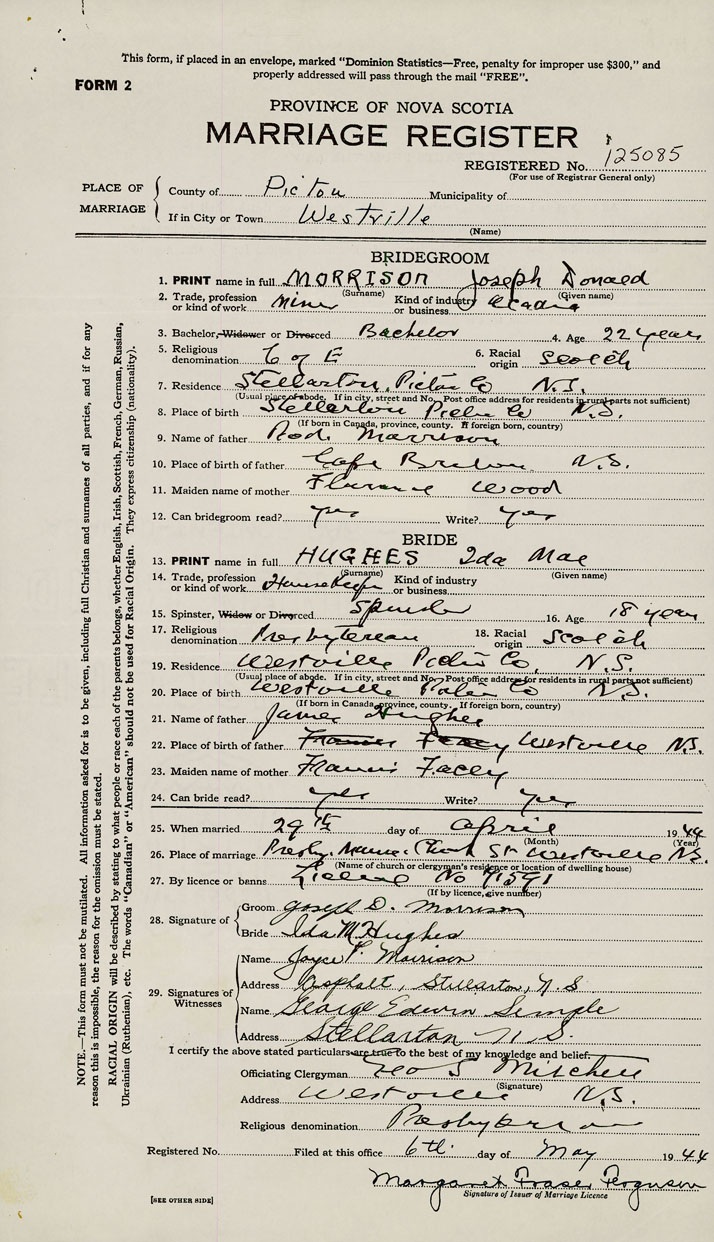 This form, if placed in an envelope, marked "Dominion Statistics—Free, penalty for improper use $300," and
properly addressed will pass through the mail "FREE".
FORM 2
PROVINCE OF NOVA SCOTIA
MARRIAGE REGISTER
REGISTERED No. 125085
(For use of Registrar General only)
PLACE OF MARRIAGE
County of Pictou Municipality of
If in City or Town Westville
(Name)
BRIDEGROOM
1. PRINT name in full MORRISON Joseph Donald
(Surname) (Given name)
2. Trade, profession or kind of work Miner Kind of industry or business Acadia
3. Bachelor, Widower or Divorced Bachelor 4. Age 22 years
5. Religious denomination C of E 6. Racial origin Scotch
7. Residence Stellarton, Pictou Co N.S.
(Usual place of abode. If in city, street and No. Post office address for residents in rural parts not sufficient)
8. Place of birth Stellarton Pictou Co N.S.
(If born in Canada, province, county. If foreign born, country)
9. Name of father Rod. Morrison
10. Place of birth of father Cape Breton N.S.
11. Maiden name of mother Florence Wood
12. Can bridegroom read? yes Write? yes
BRIDE
13. PRINT name in full HUGHES Ida Mae
(Surname) (Given name)
14. Trade, profession or kind of work Housekeeper Kind of industry or business
15. Spinster, Widow or Divorced Spinster 16. Age 18 years
17. Religious denomination Presbyterean 18. Racial origin Scotch
19. Residence Westville Pictou Co, N.S.
(Usual place of abode. If in city, street and No. Post office address for residents in rural parts not sufficient)
20. Place of birth Westville Pictou Co N.S.
(If born in Canada, province, county. If foreign born, country)
21. Name of father James Hughes
22. Place of birth of father Frances Facey Westville N.S.
23. Maiden name of mother Francis Facey
24. Can bride read? yes Write? yes
25. When married 29th day of April 1944
(Month) (Year)
26. Place of marriage Presby. Manse, Church St Westville N.S.
(Name of church or clergyman's residence or location of dwelling house)
27. By licence or banns License No 71591
(If by licence, give number)
28. Signature of
Groom Joseph D. Morrison
Bride Ida M Hughes
29. Signatures of Witnesses
Name Joyce P. Morrison
Address Asphalt, Stellarton, N.S
Name George Edwin Semple
Address Stellarton N.S.
I certify the above stated particulars are true to the best of my knowledge and belief.
Officiating Clergyman Geo S Mitchell
(Signature)
Address Westville N.S.
Religious denomination Presbyterian
Registered No. Filed at this office 6th day of May 1944
Margaret Fraser Ferguson
Signature of Issuer of Marriage Licence
[SEE OTHER SIDE]
NOTE.—This form must not be mutilated. All information asked for is to be given, including full Christian and surnames of all parties, and if for any
reason this is impossible, the reason for the omission must be stated.
RACIAL ORIGIN will be described by stating to what people or race each of the parents belongs, whether English, Irish, Scottish, French, German, Russian,
Ukrainian (Ruthenian), etc. The words "Canadian" or "American" should not be used for Racial Origin. They express citizenship (nationality).